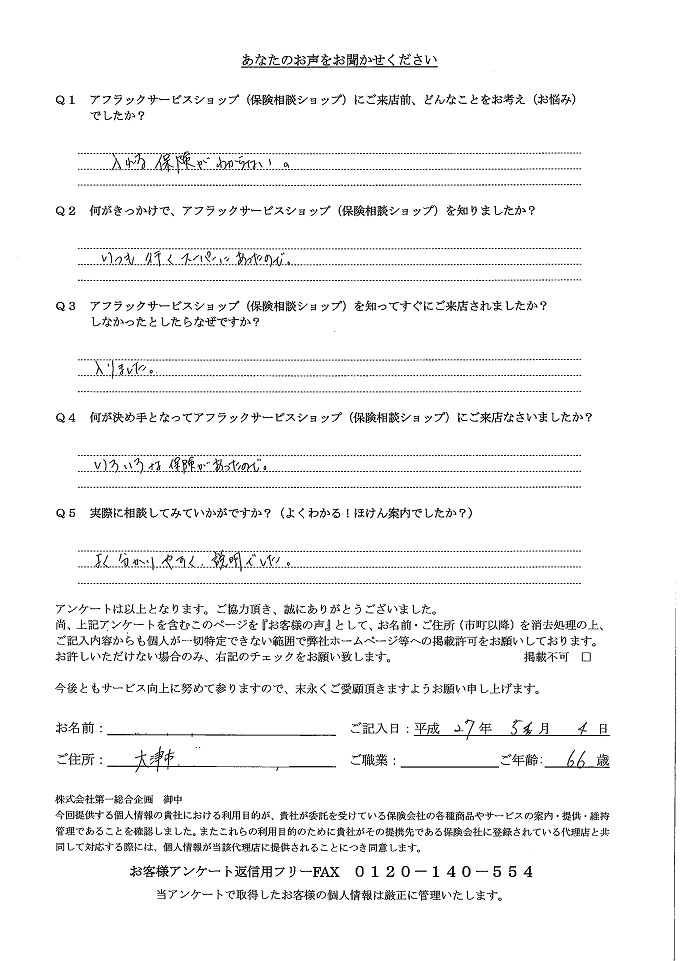 あなたのお声をお聞かせください
Q1 アフラックサービスショップ（保険相談ショップ）にご来店前、どんなことをお考え（お悩み）
でしたか？
入れる保険がわからない。
Q2 何がきっかけで、アフラックサービスショップ（保険相談ショップ）を知りましたか？
いつも行くスーパーにあったので。
Q3 アフラックサービスショップ（保険相談ショップ）を知ってすぐにご来店されましたか？
しなかったとしたらなぜですか？
入りました。
Q4 何が決め手となってアフラックサービスショップ（保険相談ショップ）にご来店なさいましたか？
いろいろな保険があったので。
Q5 実際に相談してみていかがですか？（よくわかる！ほけん案内でしたか？）
よく分かりやすく、説明でした。
アンケートは以上となります。ご協力頂き、誠にありがとうございました。
尚、上記アンケートを含むこのページを『お客様の声』として、お名前・ご住所（市町以降）を消去処理の上、
ご記入内容からも個人が一切特定できない範囲で弊社ホームページ等への掲載許可をお願いしております。
お許しいただけない場合のみ、右記のチェックをお願い致します。 掲載不可 □
今後ともサービス向上に努めて参りますので、末永くご愛顧頂きますようお願い申し上げます。
お名前： ご記入日：平成 27 年 5 月 4 日
ご住所： 大津市 ご職業： ご年齢: 66 歳
株式会社第一総合企画 御中
今回提供する個人情報の貴社における利用目的が、貴社が委託を受けている保険会社の各種商品やサービスの案内・提供・維持
管理であることを確認しました。またこれらの利用目的のために貴社がその提携先である保険会社に登録されている代理店と共
同して対応する際には、個人情報が当該代理店に提供されることにつき同意します。
お客様アンケート返信用フリーFAX 0120－140－554
当アンケートで取得したお客様の個人情報は厳正に管理いたします。